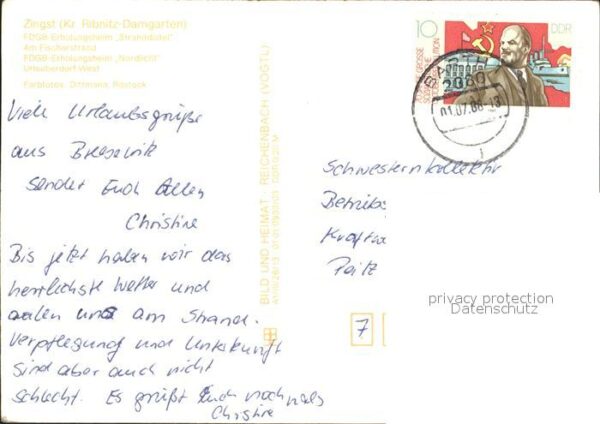 Zingst (Kr. Ribnitz-Damgarten)
FDGB-Erholungsheim „Strandhotel"
Am Fischerstrand
FDGB-Erholungsheim „Nordlicht"
Urlauberdorf West
Farbfotos: Dittmann, Rostock
Viele Urlaubsgrüße
aus
sendet Euch Allen
Christine
Bis jetzt haben wir das
herrlichste Wetter und
aalen uns am Strand.
Verpflegung und Unterkunft
sind aber auch nicht
schlecht. Es grüßt Euch nochmals
Christine
BILD UND HEIMAT · REICHENBACH (VOGTL)
10
DDR
BARTH
2380
01.07.88-18
Schwesternkollektiv
Betriebs
Kraftwe
Peitz
7
privacy protection
Datenschutz